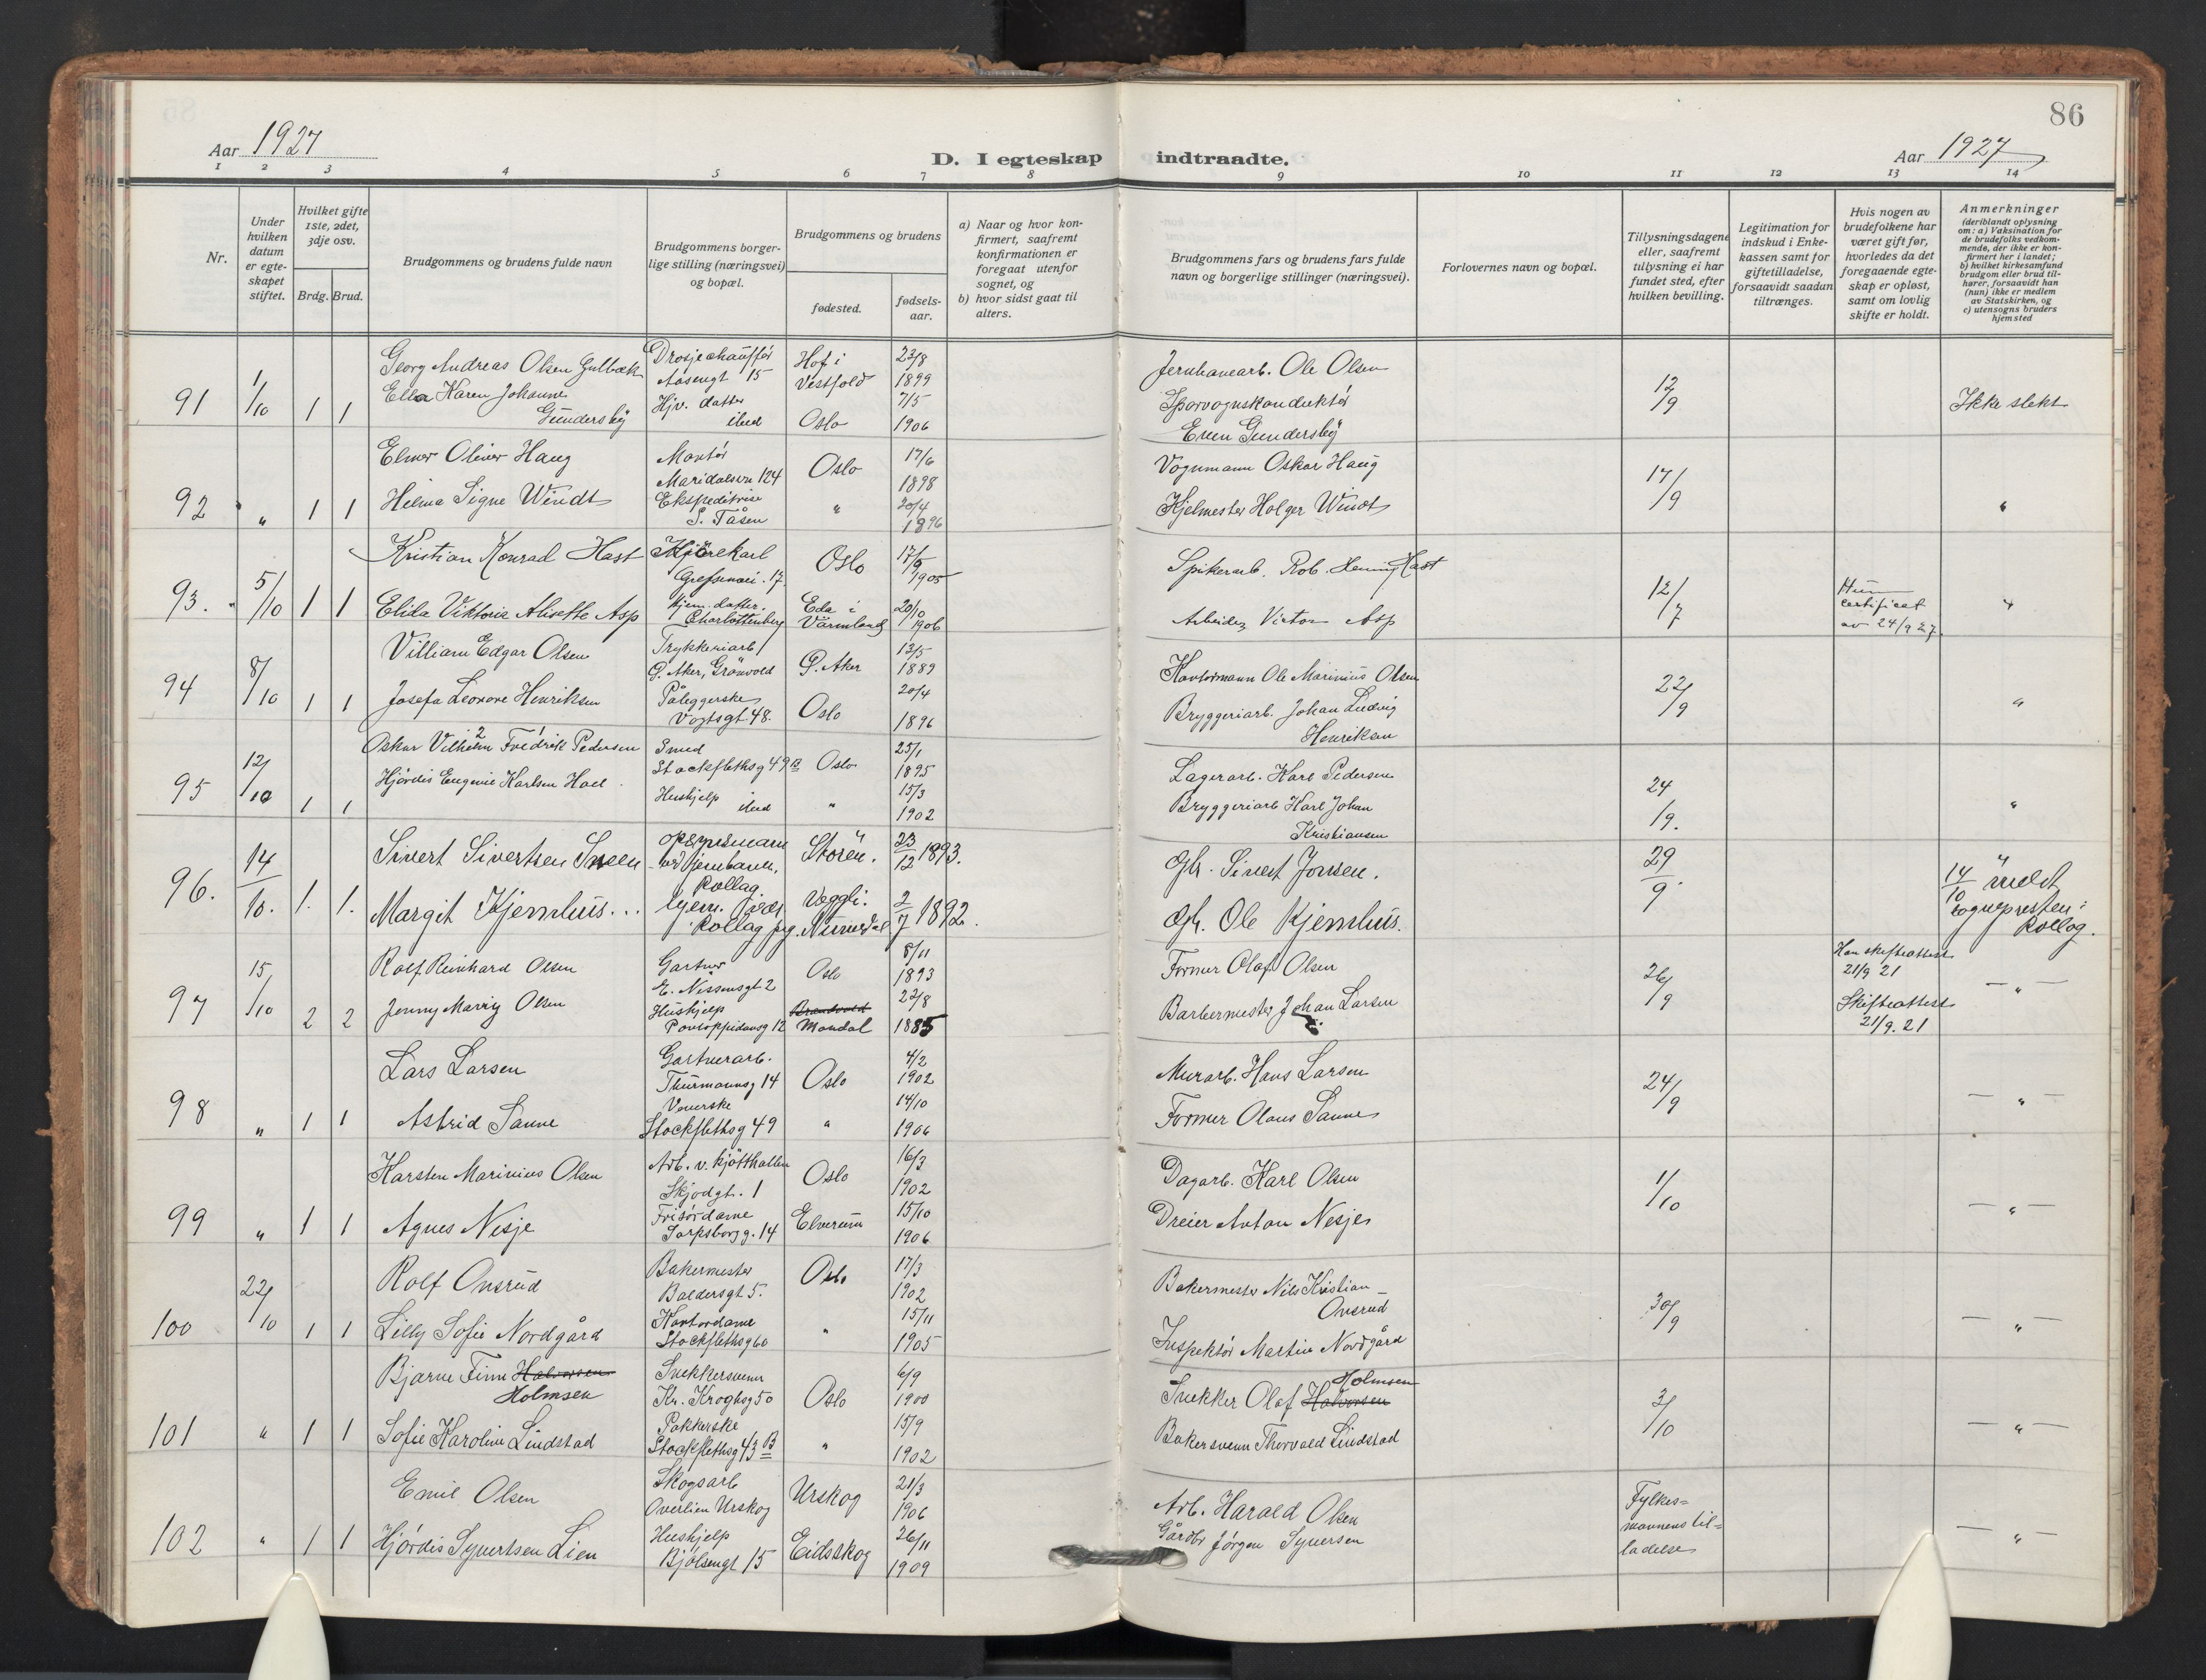 86
Aar 1927
D. I egteskap indtraadte.
Aar 1927
1 2 3 4 5 6 7 8 9 10 11 12 13 14
Nr.
Under hvilken datum er egte-skapet stiftet.
Hvilket gifte 1ste, 2det, 3dje osv.
Brdg. Brud.
Brudgommens og brudens fulde navn
Brudgommens borger-lige stilling (næringsvei) og bopæl.
Brudgommens og brudens
fødested.
fødsels-aar.
a) Naar og hvor kon-firmert, saafremt konfirmationen er foregaat utenfor sognet, og
b) hvor sidst gaat til alters.
Brudgommens fars og brudens fars fulde navn og borgerlige stillinger (næringsvei).
Forlovernes navn og bopæl.
Tillysningsdagene eller, saafremt tillysning ei har fundet sted, efter hvilken bevilling.
Legitimation for indskud i Enke-kassen samt for giftetilladelse, forsaavidt saadun tiltrænges.
Hvis nogen av brudefolkene har været gift før, hvorledes da det foregaaende egte-skap er opløst, samt om lovlig skifte er holdt.
Anmerkninger
(deriblandt oplysning om: a) Vaksination for de brudefolks vedkom-mende, der ikke er kon-firmert her i landet; b) hvilket kirkesamfund brudgom eller brud til-hører, forsaavidt han (hun) ikke er medlem av Statskirken, og c) utensogns bruders hjemsted
Georg Andreas Olsen Gulbæk Drosjechauffør Hof i 23/8
Aasengt 15 Vestfold 1899 Jernbanearb. Ole Olsen
91 1/10 1 1 Ella Karen Johanne Hjv. datter 7/5 Sporvognskonduktør 12/9 Ikke slekt
Gundersby ibid Oslo 1906 Even Gundersby
Elmer Oliver Haug Montør Oslo 17/6 Vognmann Oskar Haug
Maridalsvn 124 1898
92 " 1 1 Hilma Signe Windt Ekspeditrise " 20/4 Hjelmester Holger Windt 17/9 "
S. Tåsen 1896
Kristian Konrad Hast Kjørekarl Oslo 17/9 Spikerarb. Rob. Henning Hast
Grefsenvei. 17. 1905
93. 5/10 1 1 Elida Viktoria Alisette Asp hjem. datter. Eda i 20/10 Arbeider Victor Asp 12/7 Hun certificat "
Charlottenberg Värmland 1906 av 24/9 27
Villiam Edgar Olsen Trykkeriarb 13/5
Ø. Aker, Grönvold Ø. Aker 1889 Kontormann Ole Marinius Olsen
94 8/10 1 1 Josefa Leonore Henriksen Påleggerske 20/4 Bryggeriarb. Johan Ludvig 22/9 "
Vogtsgt 48. Oslo 1896 Henriksen
Oskar Vilhelm Fredrik Pedersen Smed 25/1
2 1
Stockflethsg 49 B Oslo 1895 Lagerarb. Karl Pedersen
95 12/10 1 1 Hjördis Eugenie Karlsen Hoel Hushjelp " 15/3 Bryggeriarb Karl Johan 24/9. "
ibid 1902 Kristiansen
Sivert Sivertsen Sneen opsynsmann Støren. 23/12 1893. Gbr. Sivert Jonsen.
ved jernbanen. Rollag.
96. 14/10. 1. 1. Margit Kjemhus... hjem. Veggli. 2/7 1892. Gbr. Ole Kjemhus. 29/9. " 14/10 meldt sognepresten i Rollag.
Rollag prg. Numedal
Rolf Reinhard Olsen Gartner Oslo 8/11 Former Olaf Olsen Han skifteattest
E. Nissensgt 2 1893 21/9 21
97 15/10 2 2 Jenny Marry Olsen Hushjelp Brandvold 22/8 Barbermester Johan Larsen 26/9 Skifteattest — " —
Pontoppidansg 12 Mandal 1885 21/9. 21
Lars Larsen Gartnerarb. Oslo 4/2 Murarb. Hans Larsen
Thurmannsg 14 1902
98 " 1 1 Astrid Sanne Veverske " 14/10 Former Olaus Sanne 24/9 — " —
Stockflethsg 49 1906
Karsten Marinius Olsen Arb. v. kjøtthallen Oslo 16/3 Dagarb. Karl Olsen
Skjodgt. 1 1902
99 " 1 1 Agnes Nesje Frisørdame Elverum 15/10 Dreier Anton Nesje 1/10 — " —
Sarpsborgg. 14 1906
Rolf Onsrud Bakermester Oslo 17/3 Bakermester Nils Kristian
Baldersgt 5. 1902 Onsrud
100 22/10 1 1 Lilly Sofie Nordgård Kontordame " 15/11 Inspektør Martin Nordgård 30/9 — " —
Stockflethsg 60 1905
Bjarne Finn Halvorsen Snekkersvenn 6/9 Holmsen
Holmsen Kr. Kroghsg 50 Oslo 1900 Snekker Olaf Halvorsen
101 " 1 1 Sofie Karoline Lindstad Pakkerske " 15/9 Bakersvenn Thorvald Lindstad 3/10 — " —
Stockflethsg 43 B 1902
Emil Olsen Skogsarb Urskog 21/3 Arb. Harald Olsen Fylkes=
Overlien Urskog 1906 mannens til=
102 " 1 1 Hjórdis Syvertsen Lien Hushjelp Eidsskog 26/11 Gårdbr Jørgen Syversen ladelse — " —
Bjølsengt 15 1909